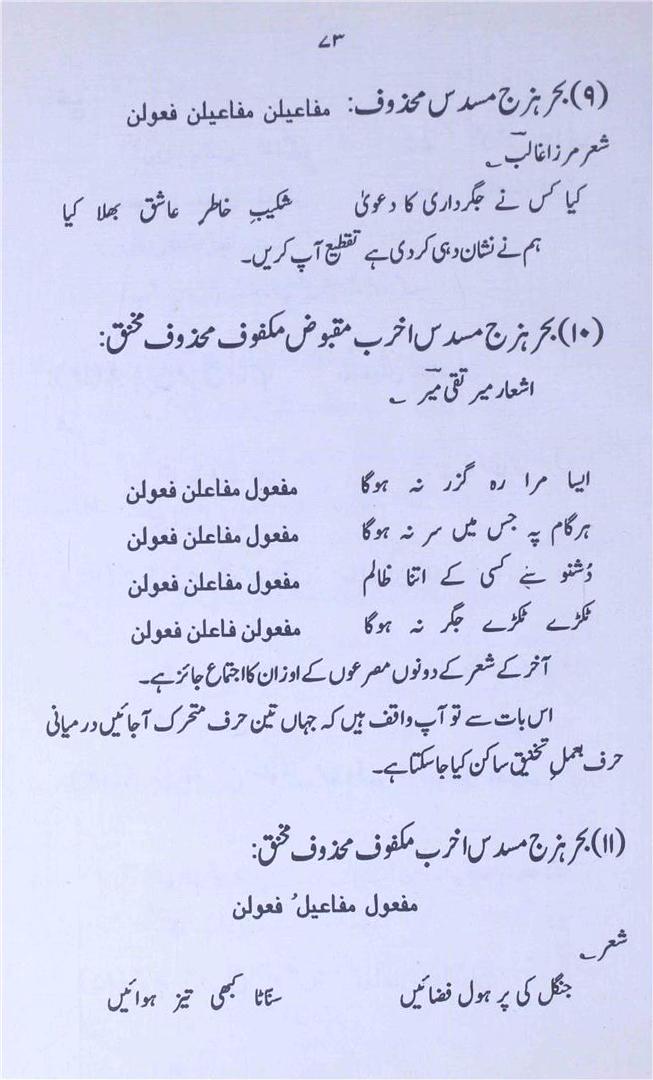 ۷۳
(۹) بحر ہزج مسدس محذوف: مفاعیلن مفاعیلن فعولن
شعر مرزا غالب ؎
کیا کس نے جگرداری کا دعویٰ شکیبِ خاطر عاشق بھلا کیا
ہم نے نشان دہی کر دی ہے تقطیع آپ کریں۔
(۱۰) بحر ہزج مسدس اخرب مقبوض مکفوف محذوف مخنق:
اشعار میر تقی میر ؎
ایسا مرا رہ گزر نہ ہوگا مفعول مفاعلن فعولن
ہر گام پہ جس میں سر نہ ہوگا مفعول مفاعلن فعولن
دُشنو سنے کسی کے اتنا ظالم مفعول مفاعلن فعولن
ٹکڑے ٹکڑے جگر نہ ہوگا مفعولن فاعلن فعولن
آخر کے شعر کے دونوں مصرعوں کے اوزان کا اجتماع جائز ہے۔
اس بات سے تو آپ واقف ہیں کہ جہاں تین حرف متحرک آجائیں درمیانی
حرف بعملِ تخنیق ساکن کیا جاسکتا ہے۔
(۱۱) بحر ہزج مسدس اخرب مکفوف محذوف مخنق:
مفعول مفاعیلُ فعولن
شعر ؎
جنگل کی پر ہول فضائیں سنّاٹا کبھی تیز ہوائیں